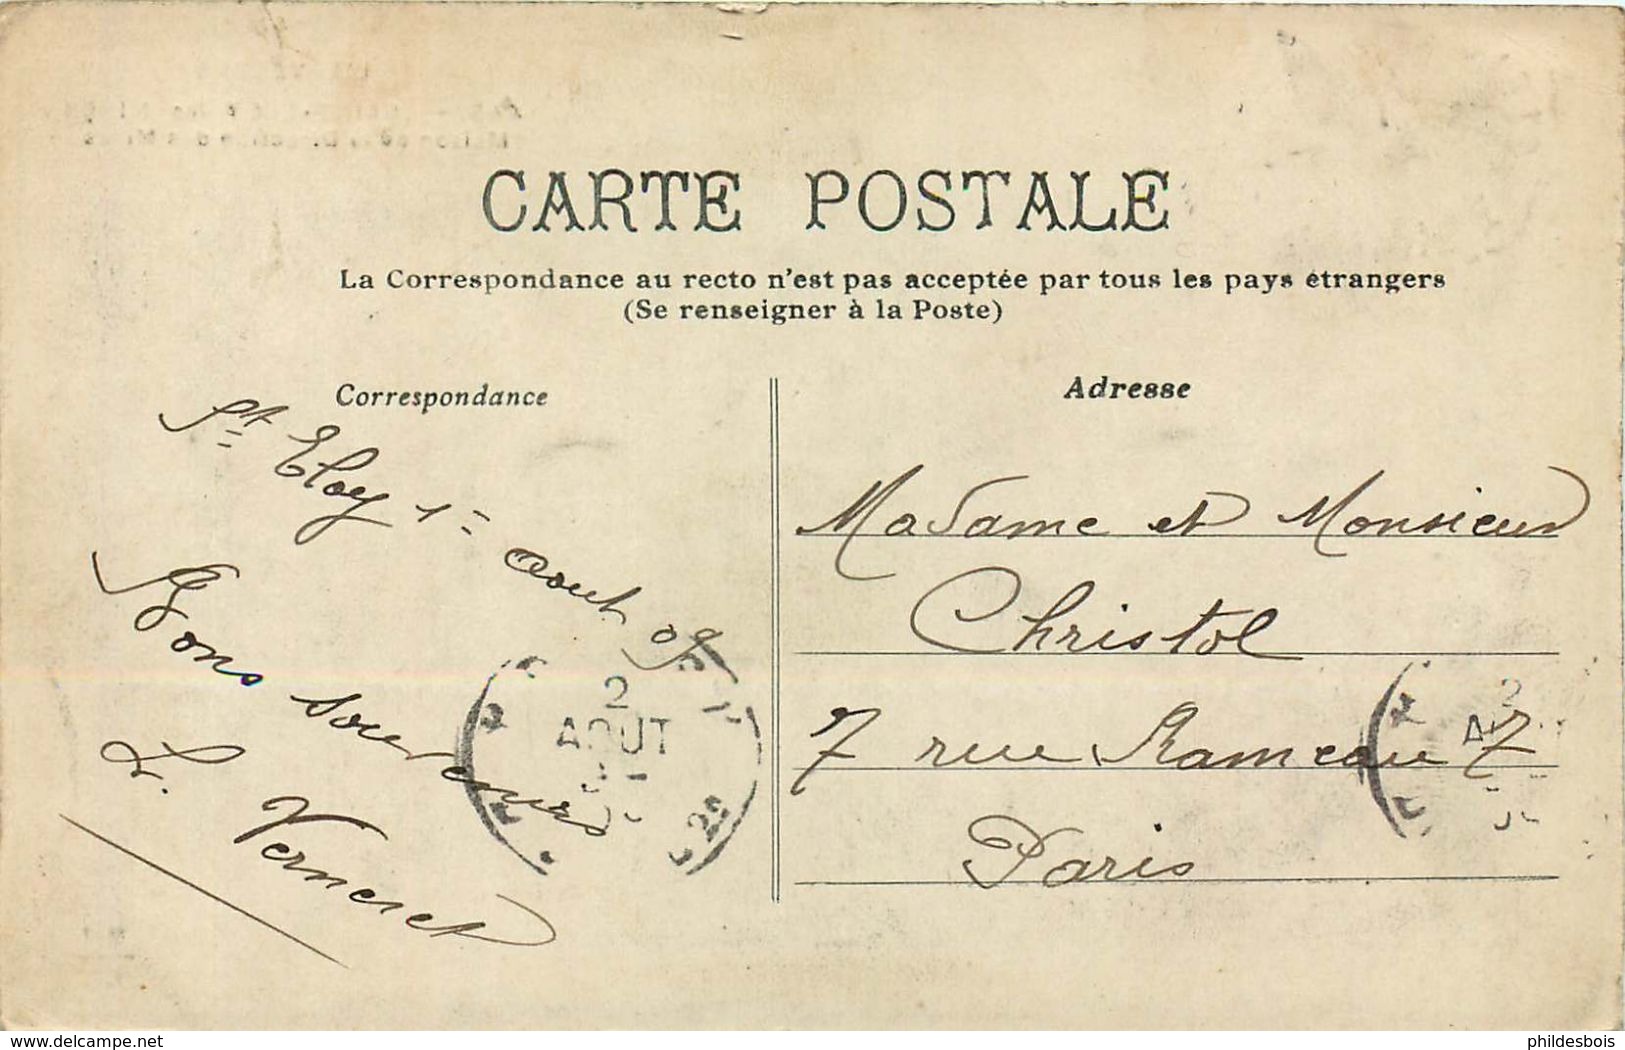 CARTE POSTALE
La Correspondance au recto n'est pas acceptée par tous les pays étrangers
(Se renseigner à la Poste)
Correspondance
St Eloy 1er Aout 09
Bons souvenirs
L. Verneret
2
AOUT
Adresse
Madame et Monsieur
Christol
7 rue Rameau 7
Paris
delcampe.net
phildesbois